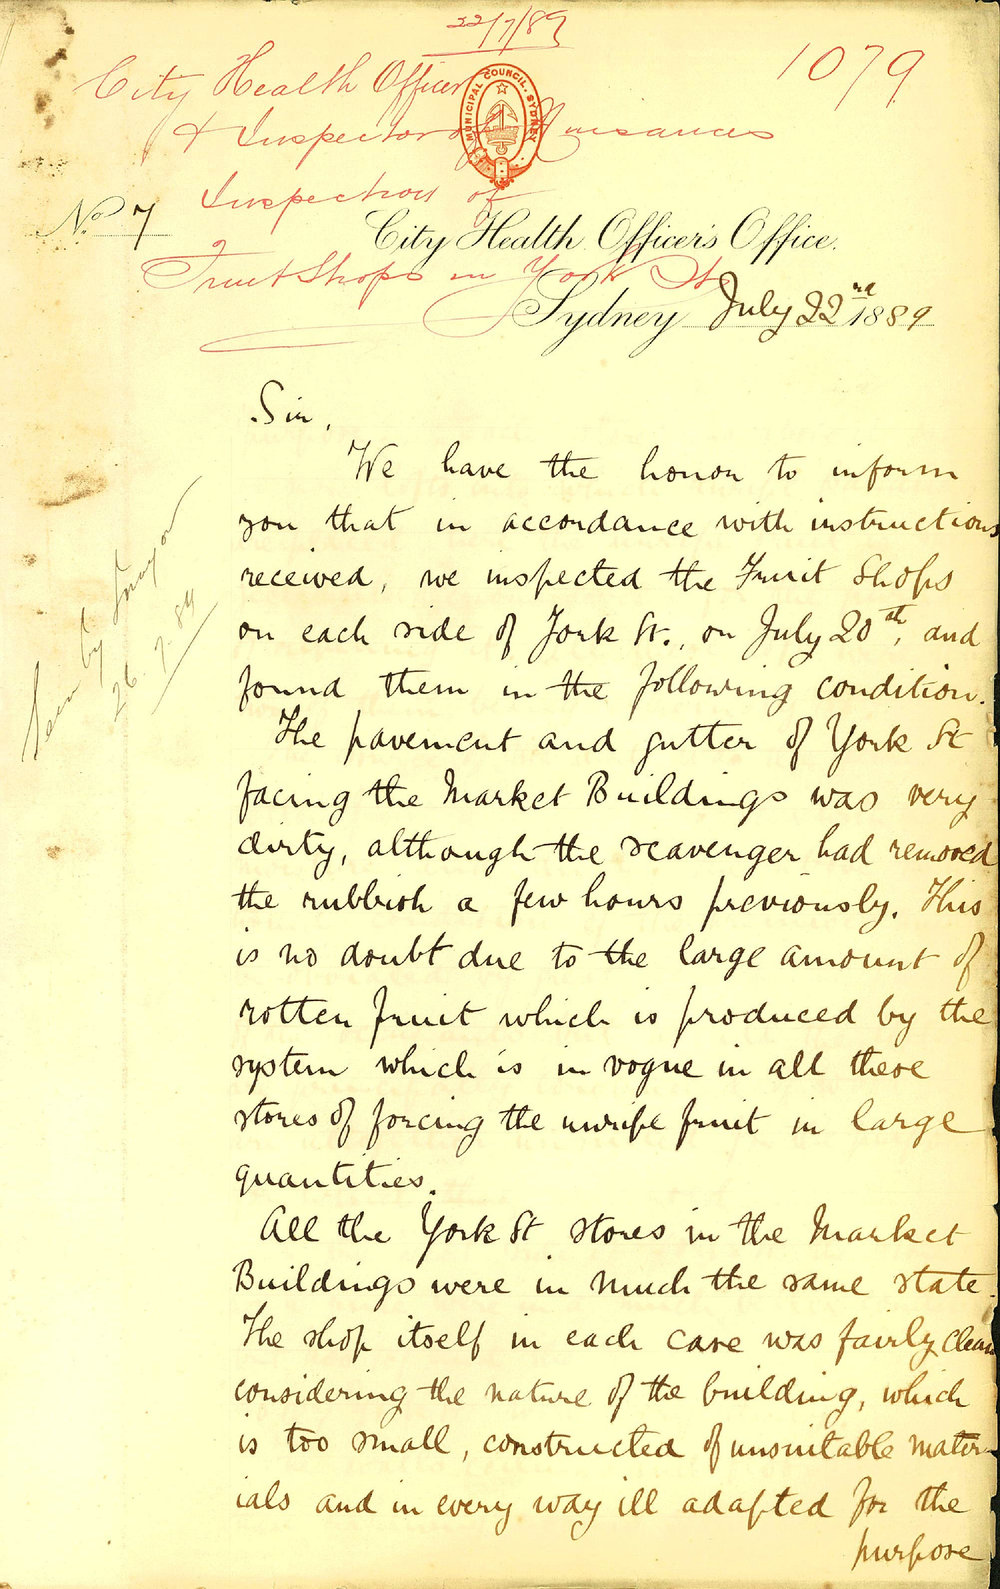 22/7/89
1079
City Health Officer
& Inspector of Nuisances
Inspection of
Fruit Shops in York St
MUNICIPAL COUNCIL. SYDNEY
No. 7
City Health Officer's Office.
Sydney July 22nd 1889
Seen by Mayor
26.7.89
Sir,
We have the honor to inform
you that in accordance with instructions
received, we inspected the Fruit Shops
on each side of York St., on July 20th, and
found them in the following condition.
The pavement and gutter of York St
facing the Market Buildings was very
dirty, although the scavenger had removed
the rubbish a few hours previously. This
is no doubt due to the large amount of
rotten fruit which is produced by the
system which is in vogue in all these
stores of forcing the unripe fruit in large
quantities.
All the York St stores in the Market
Buildings were in much the same state.
The shop itself in each case was fairly clean
considering the nature of the building, which
is too small, constructed of unsuitable mater-
ials and in every way ill adapted for the
purpose